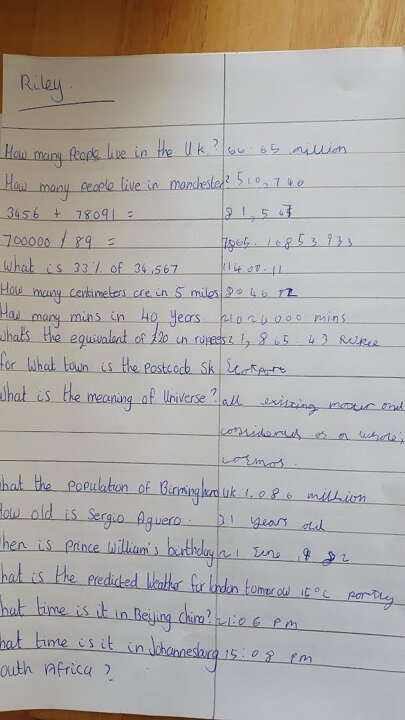 Riley.
How many people live in the UK? 66.65 million
How many people live in manchester? 510,746
3456 + 78091 = 81,547
700000 / 89 = 7865.16853933
what is 33% of 34,567 11407.11
How many centimeters are in 5 miles 804672
How many mins in 40 years 21024000 mins
what's the equivalent of £20 in rupees 1,865.43 Rupee
for what town is the postcode Sk
What is the meaning of Universe? all existing matter and
considered as a whole;
cosmos.
hat the population of Birmingham UK 1.086 million
How old is Sergio Aguero. 31 years old
hen is Prince William's birthday 21 June 1982
hat is the predicted Weather for london tomorrow 15°C partly
hat time is it in Beijing China? 21:06 pm
hat time is it in Johannesburg 15:08 pm
outh Africa?